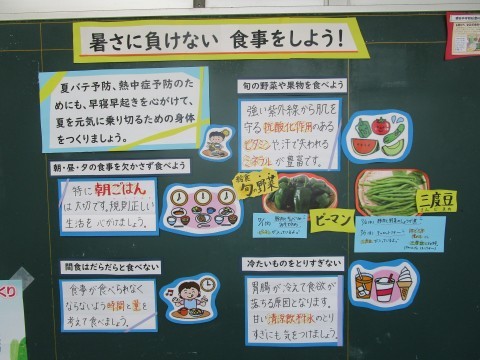 暑さに負けない 食事をしよう！
夏バテ予防、熱中症予防のた
めにも、早寝早起きを心がけて、
夏を元気に乗り切るための身体
をつくりましょう。
朝・昼・夕の食事を欠かさず食べよう
特に朝ごはん
は大切です。規則正しい
生活を心がけましょう。
間食はだらだらと食べない
食事が食べられなく
ならないよう時間と量を
考えて食べましょう。
旬の野菜や果物を食べよう
強い紫外線から肌を
守る抗酸化作用のある
ビタミンや汗で失われる
ミネラルが豊富です。
旬の野菜
ピーマン
三度豆
冷たいものをとりすぎない
胃腸が冷えて食欲が
落ちる原因となります。
甘い清涼飲料水のとり
すぎにも気をつけましょう。